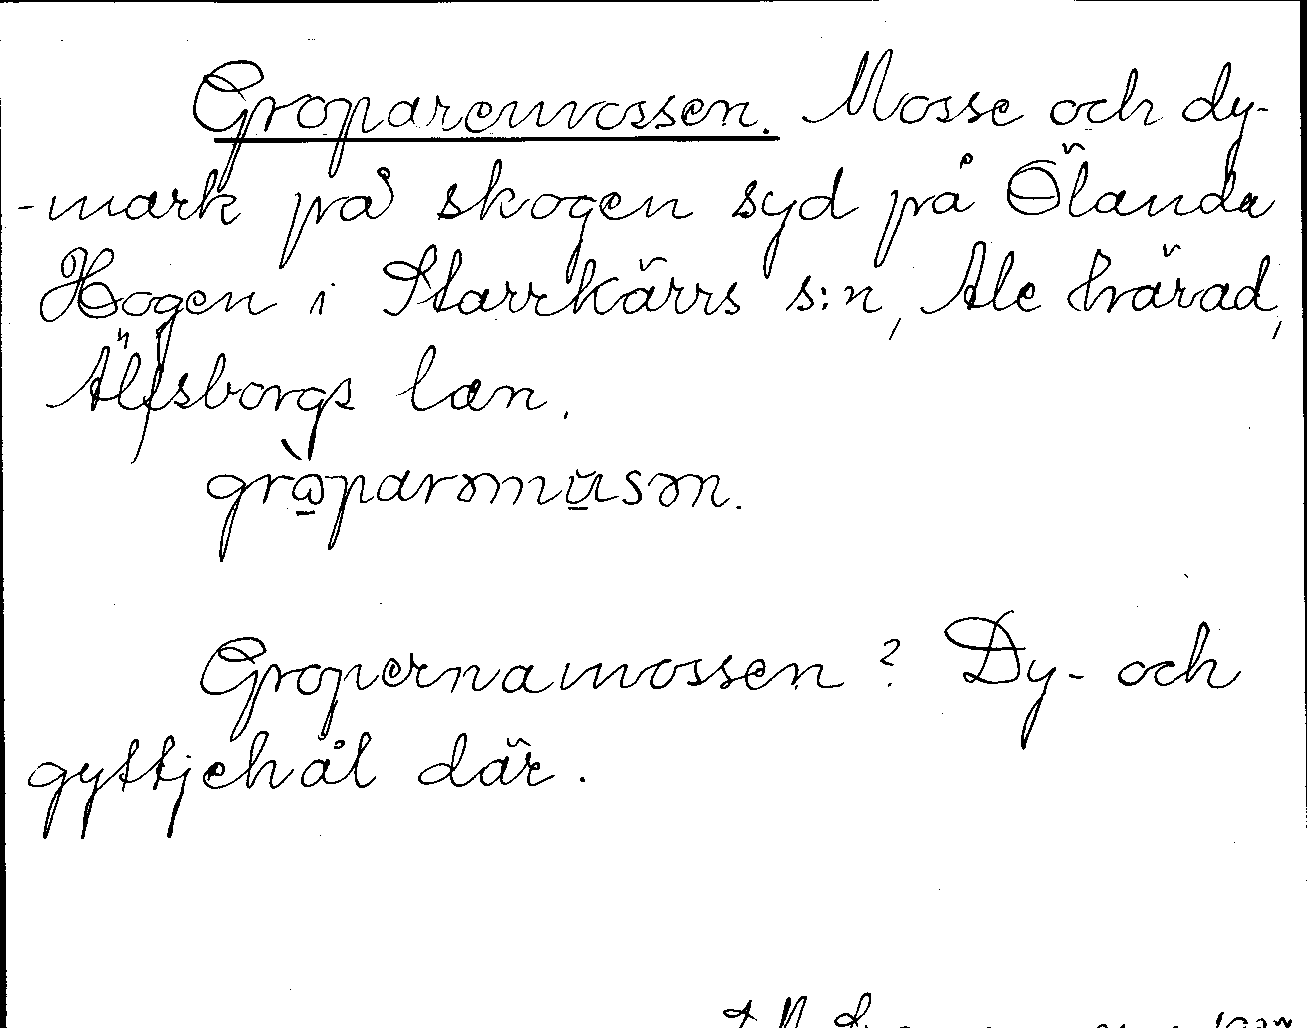 Groparemossen. Mosse och dy-
-mark på skogen syd på Ölanda
Hogen i Starrkärrs s:n, Ale härad,
Älfsborgs län.
gròparəmusən.
Gropernamossen? Dy- och
gyttjehål där.